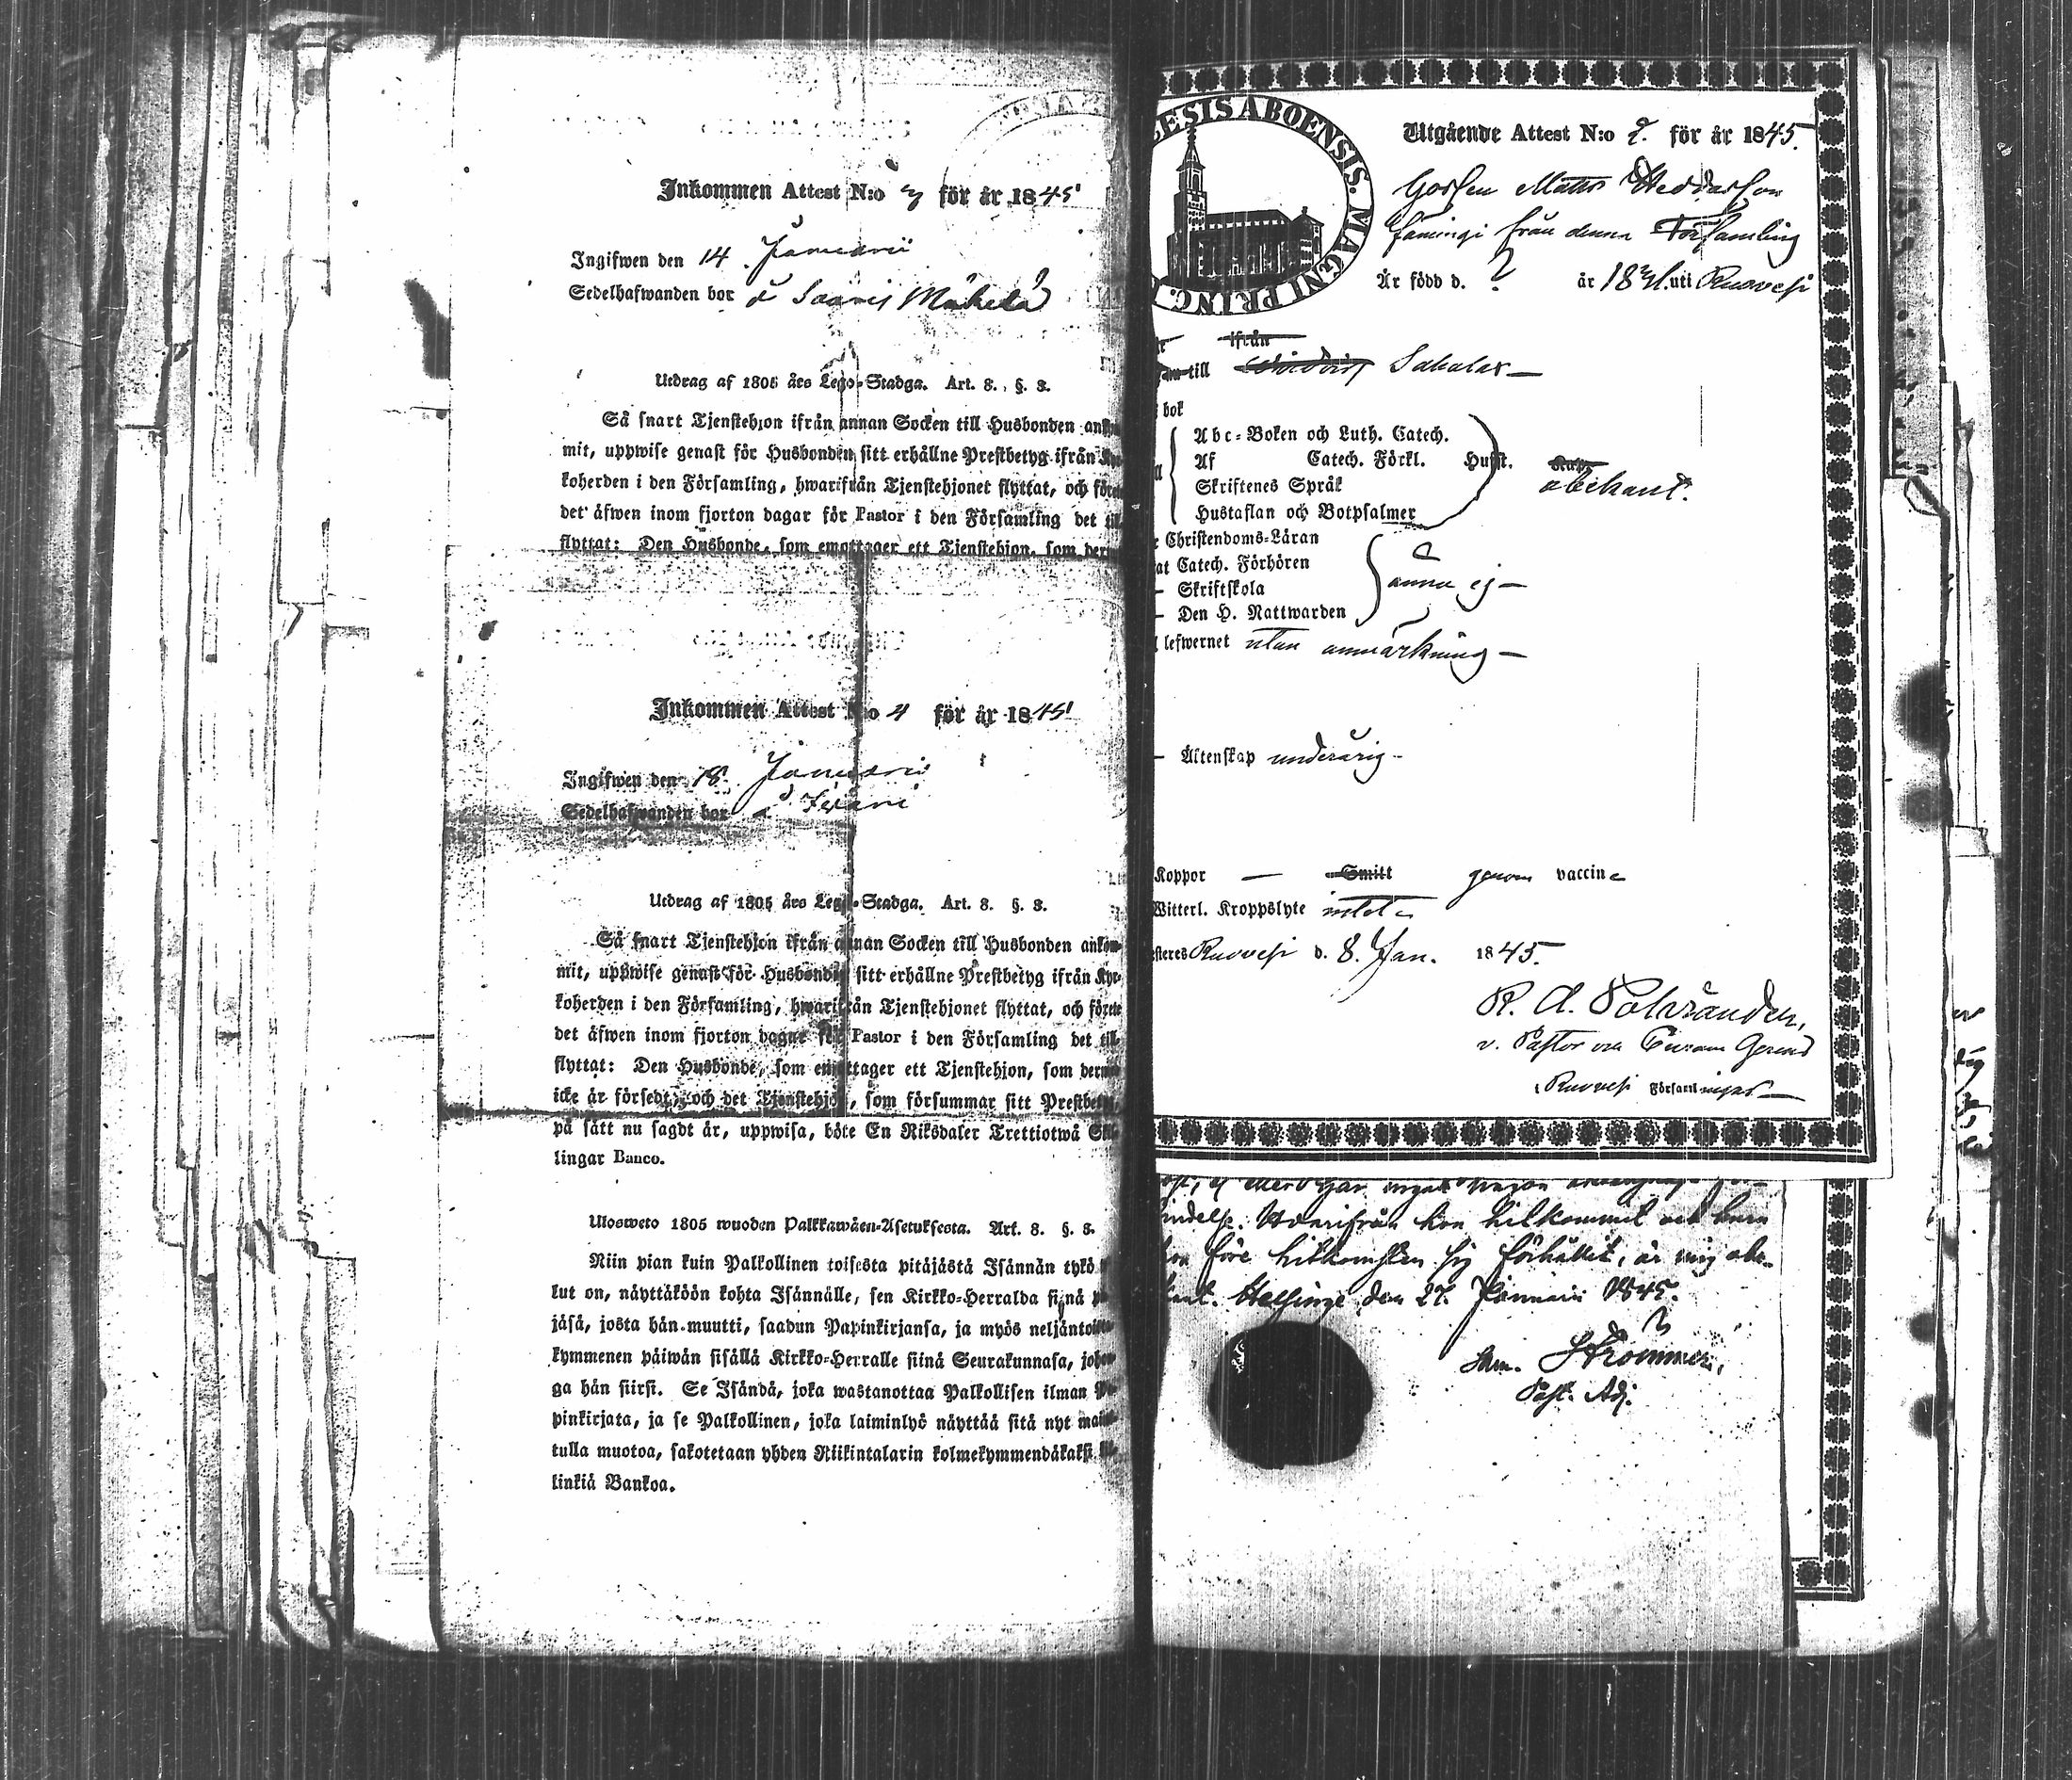 Inkommen Attest N:o 3 för år 1845
Ingifwen den 14 Januarii
Sedelhafwanden bor å Saaris Mäkelä
Utdrag af 1805 års Lego-Stadga. Art. 8. §. 8.
Så snart Tjenstehjon ifrån annan Socken till Husbonden
mit, uppwise genast för Husbonden sitt erhållne Prestbetyg ifrån
koherden i den Församling, hwarifrån Tjenstehjonet flyttat, och
det äfwen inom fjorton dagar för Pastor i den Församling det
flyttat: Den Husbonde, som emottager ett Tjenstehjon, som
Inkommen Attest N:o 4 för år 1845
Ingifwen den 18 Januarii
Sedelhafwanden bor å
Utdrag af 1805 års Lego-Stadga. Art. 8. §. 8.
Så snart Tjenstehjon ifrån annan Socken till Husbonden ankom-
mit, uppwise genast för Husbonden sitt erhållne Prestbetyg ifrån Kyr-
koherden i den Församling, hwarifrån Tjenstehjonet flyttat, och förete
det äfwen inom fjorton dagar för Pastor i den Församling det till-
flyttat: Den Husbonde, som emottager ett Tjenstehjon, som dermed
icke är försedt, och det Tjenstehjon, som försummar sitt Prestbetyg,
på sätt nu sagdt är, uppwisa, böte En Riksdaler Trettiotwå Skil-
lingar Banco.
Ulosweto 1805 wuoden Palkkawäen-Asetuksesta. Art. 8. §. 8.
Niin pian kuin Palkollinen toisesta pitäjästä Isännän tykö
lut on, näyttäköön kohta Isännälle, sen Kirkko-Herralda siinä
jäsä, josta hän muutti, saadun Papinkirjansa, ja myös neljäntoista-
kymmenen päiwän sisällä Kirkko-Herralle siinä Seurakunnasa, johon-
ga hän siirsi. Se Isändä, joka wastanottaa Palkollisen ilman Pa-
pinkirjata, ja se Palkollinen, joka laiminlyö näyttää sitä nyt mainit-
tulla muotoa, sakotetaan yhden Riikintalarin kolmekymmendäkaksi kil-
linkiä Bankoa.
ESIS ABOENSIS. MAGNI PRINC.
Utgående Attest N:o 2. för år 1845.
Gossen Matts
från denna Församling
Är född d. ? år 18 uti Ruovesi
ifrån
till Sahalax
bok
Abc-Boken och Luth. Catech.
Af Catech. Förkl. Husst.
Skriftenes Språk obekant.
Hustaflan och Botpsalmer
Christendoms-Läran
at Catech. Förhören
– Skriftskola ännu ej –
– Den H. Nattwarden
lefwernet utan anmärkning –
– Äktenskap underårig –
Koppor — Smitt genom vaccine
Witterl. Kroppslyte intet
Ruovesi d. 8. Jan. 1845.
v. Pastor
Ruovesi Församlingar
Hvarifrån hon hitkommit och huru
hon före hitkomsten sig förhållit, är mig obe-
kant. Helsinge den 27. Januarii 1845.
Past. Adj.